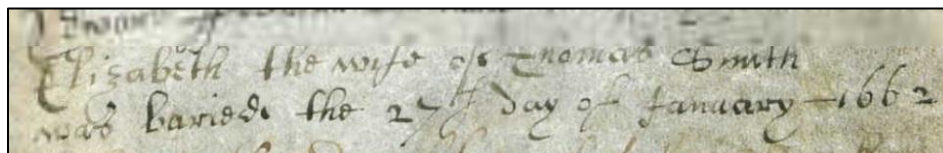 Elizabeth the wife of Thomas Smith
was baried the 27th day of January 1662